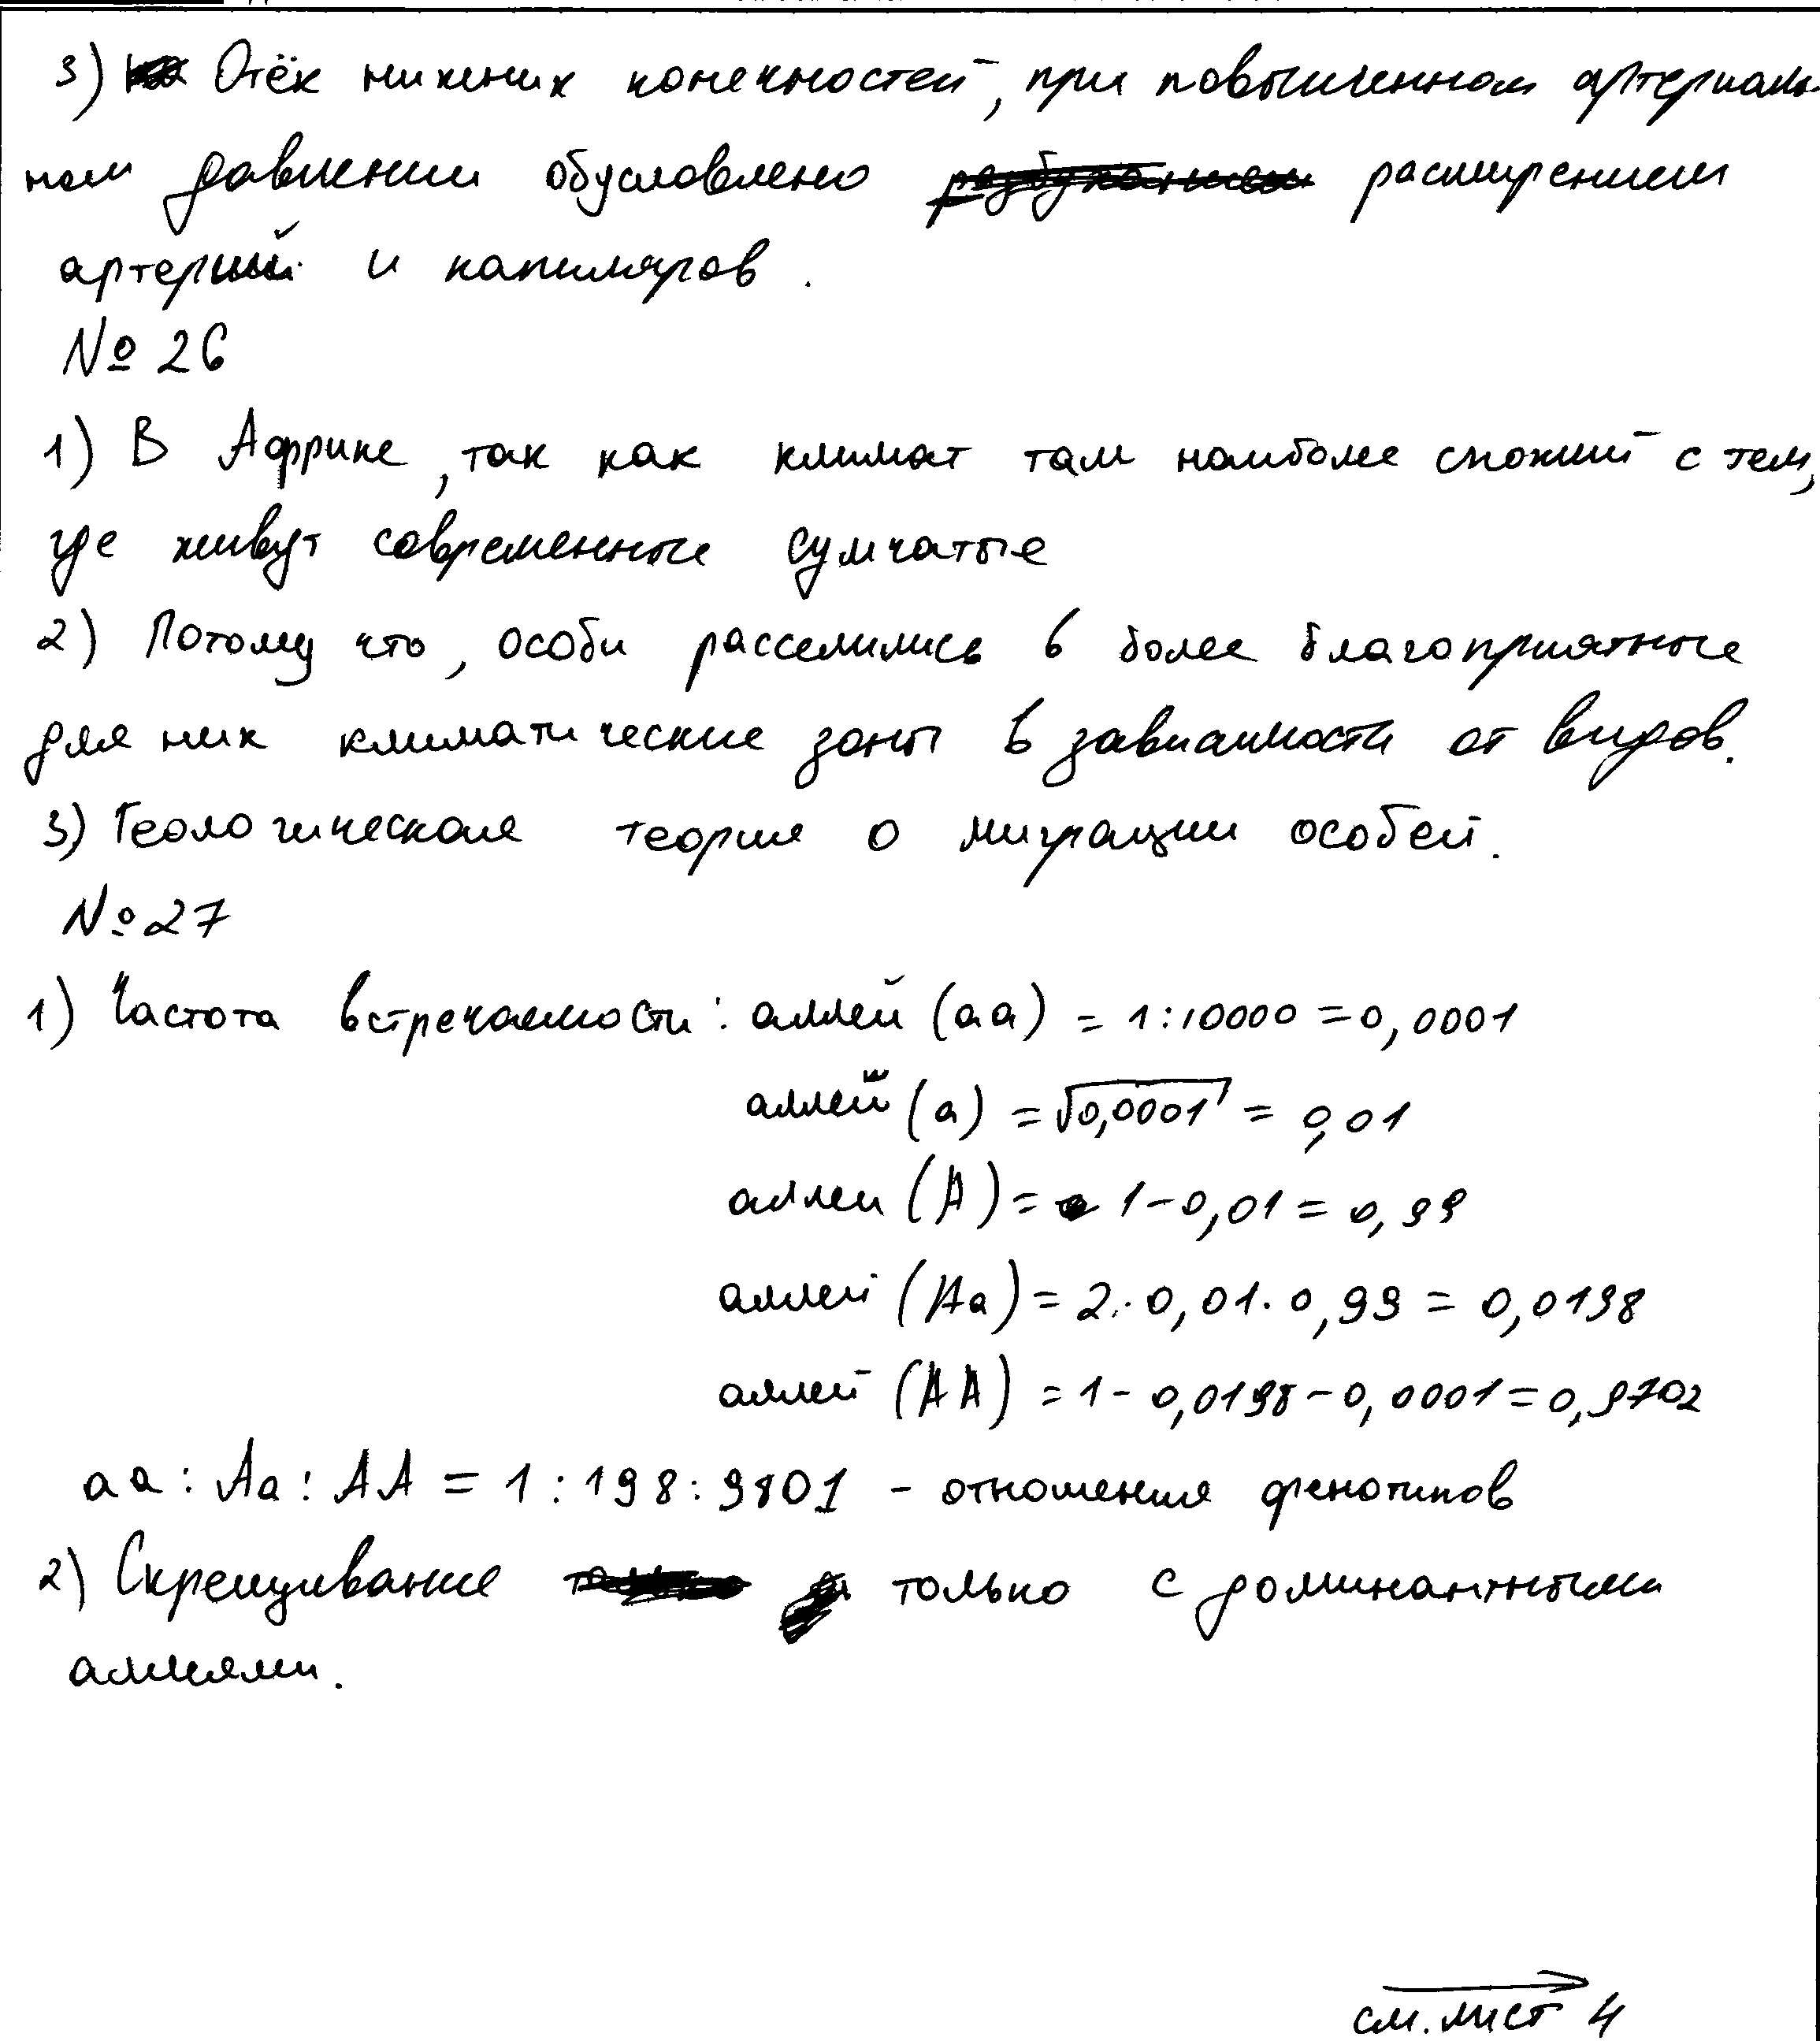 3) Отёк нижних конечностей, при повышенном артериаль-
ном давлении обусловлено расширением
артерий и капиляров.
№ 26
1) В Африке, так как климат там наиболее схожий с тем,
где живут современные сумчатые
2) Потому что, особи расселились в более благоприятные
для них климатические зоны в зависимости от видов.
3) Геологическая теория о миграции особей.
№ 27
1) Частота встречаемости: аллей (аа) = 1:10000 = 0,0001
аллей (а) = √0,0001 = 0,01
аллеи (А) = 1 - 0,01 = 0,99
аллей (Аа) = 2·0,01·0,99 = 0,0198
аллей (АА) = 1 - 0,0198 - 0,0001 = 0,9702
аа : Аа : АА = 1 : 198 : 9801 - отношения фенотипов
2) Скрещивание только с доминантными
аллеями.
см. лист 4